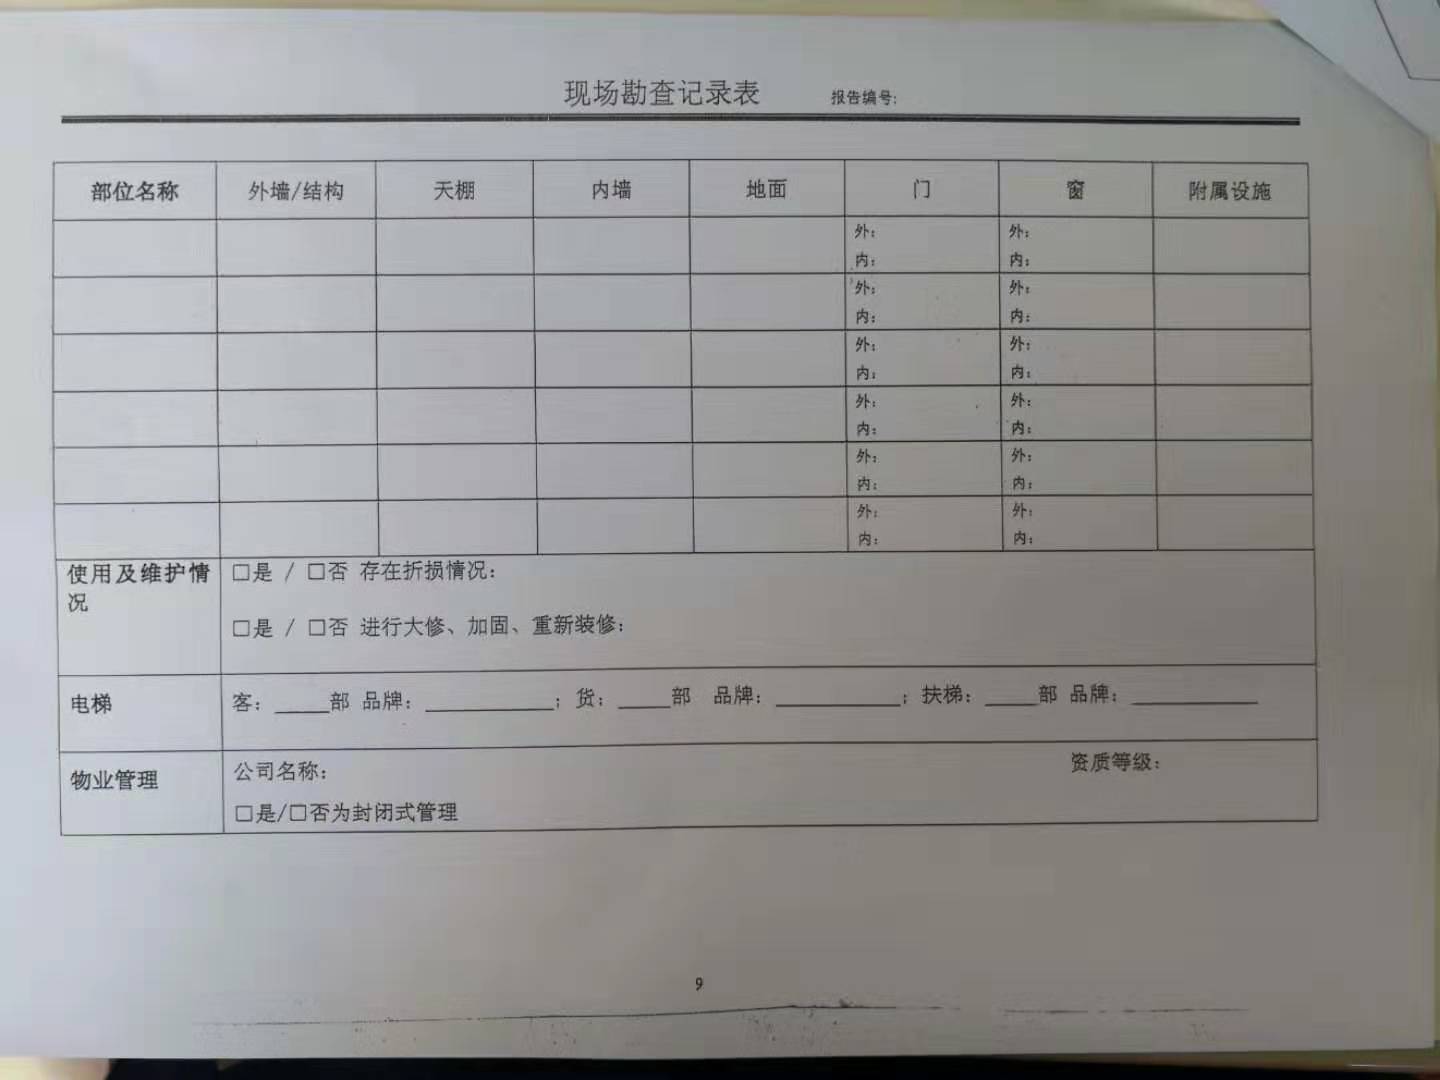 现场勘查记录表 报告编号:
部位名称 外墙/结构 天棚 内墙 地面 门 窗 附属设施
外: 外:
内: 内:
外: 外:
内: 内:
外: 外:
内: 内:
外: 外:
内: 内:
外: 外:
内: 内:
外: 外:
内: 内:
使用及维护情况
□是 / □否 存在折损情况:
□是 / □否 进行大修、加固、重新装修:
电梯 客:_____部 品牌:____________; 货:_____部 品牌:____________; 扶梯:_____部 品牌:____________
物业管理 公司名称: 资质等级:
□是/□否为封闭式管理
9